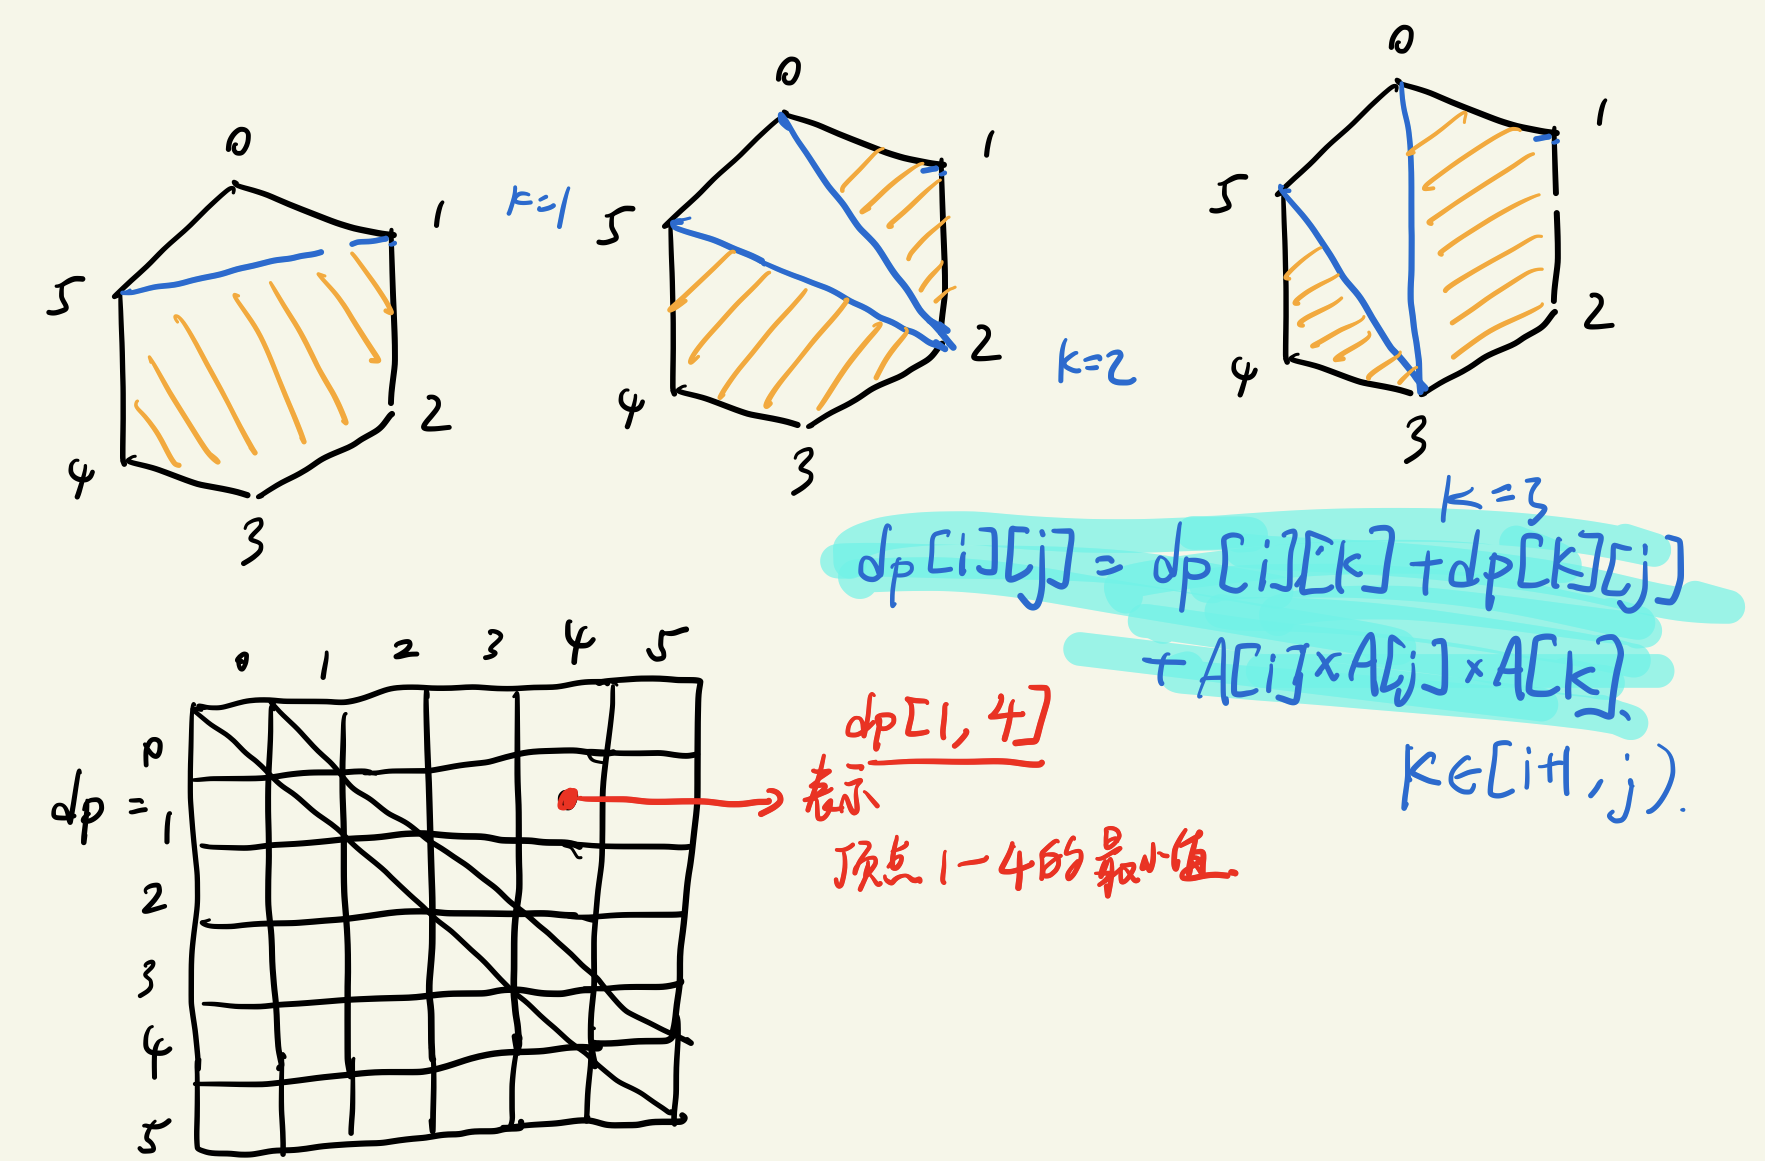 0
1
5
2
4
3
k=1
0
1
5
2
4
3
k=2
0
1
5
2
4
3
k=3
dp[i][j] = dp[i][k] + dp[k][j]
+ A[i] × A[j] × A[k].
k∈[i+1, j).
0 1 2 3 4 5
dp =
0
1
2
3
4
5
dp[1, 4]
表示
顶点1-4的最小值